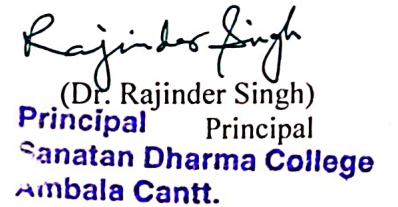 Rajinder Singh
(Dr. Rajinder Singh)
Principal Principal
Sanatan Dharma College
Ambala Cantt.